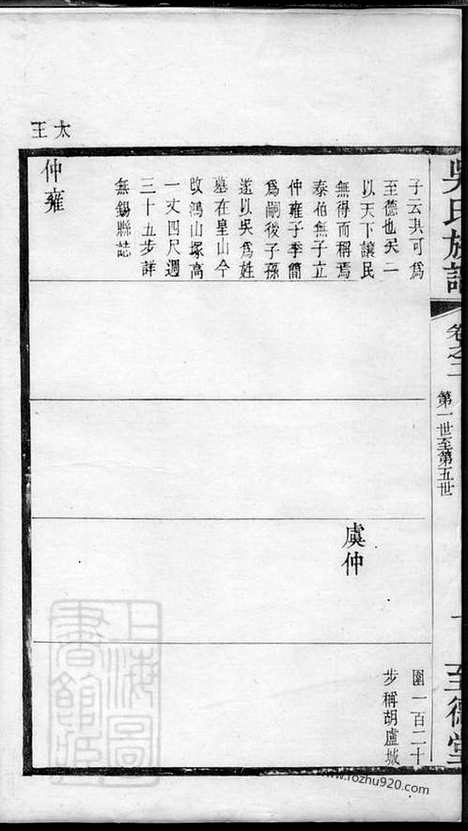 吳氏族譜
卷之二
第一世至第五世
一
至德堂
子云其可為
至德也矣二
以天下讓民
無得而稱焉
泰伯無子立
仲雍子季簡
為嗣後子孫
遂以吳為姓
墓在皇山今
改鴻山塚高
一丈四尺週
三十五步詳
無錫縣誌
太王
仲雍
虞仲
圍一百二十
步稱胡盧城
上海圖書館藏
www.rozhu920.com